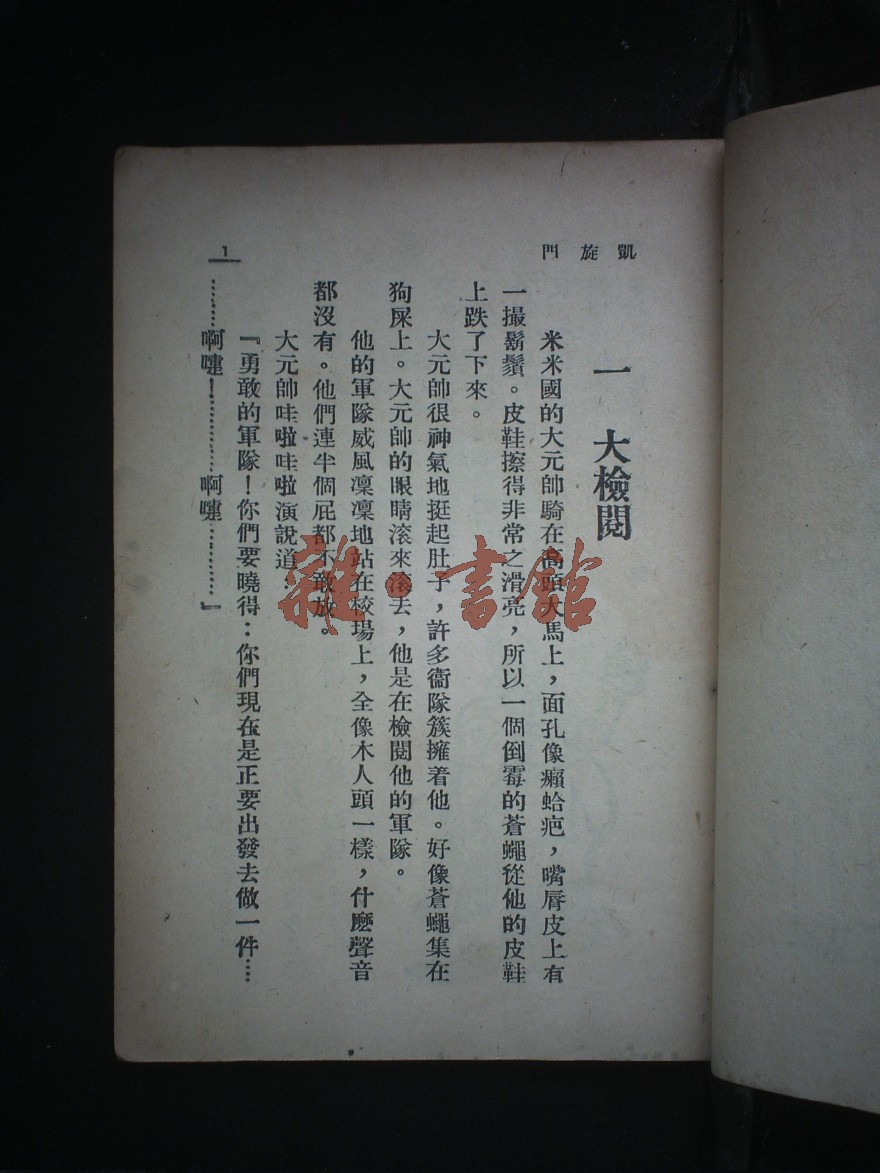 凱旋門
一　大檢閱
米米國的大元帥騎在高頭大馬上，面孔像癩蛤疤，嘴唇皮上有
一撮鬍鬚。皮鞋擦得非常之滑亮，所以一個倒霉的蒼蠅從他的皮鞋
上跌了下來。
大元帥很神氣地挺起肚子，許多衞隊簇擁着他。好像蒼蠅集在
狗屎上。大元帥的眼睛滾來滾去，他是在檢閱他的軍隊。
他的軍隊威風凜凜地站在校場上，全像木人頭一樣，什麼聲音
都沒有。他們連半個屁都不敢放。
大元帥哇啦哇啦演說道：
『勇敢的軍隊！你們要曉得：你們現在是正要出發去做一件……
………啊嚏！…………啊嚏…………』
1
雜·書館